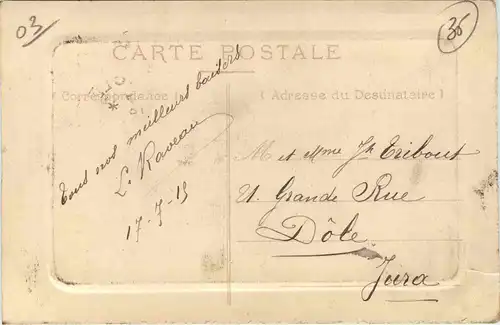 03
36
CARTE POSTALE
(Correspondance)
(Adresse du Destinataire)
Tous nos meilleurs baisers
L. Raveau
17-7-19
M et Mme Jh Tribout
21. Grande Rue
Dôle
Jura